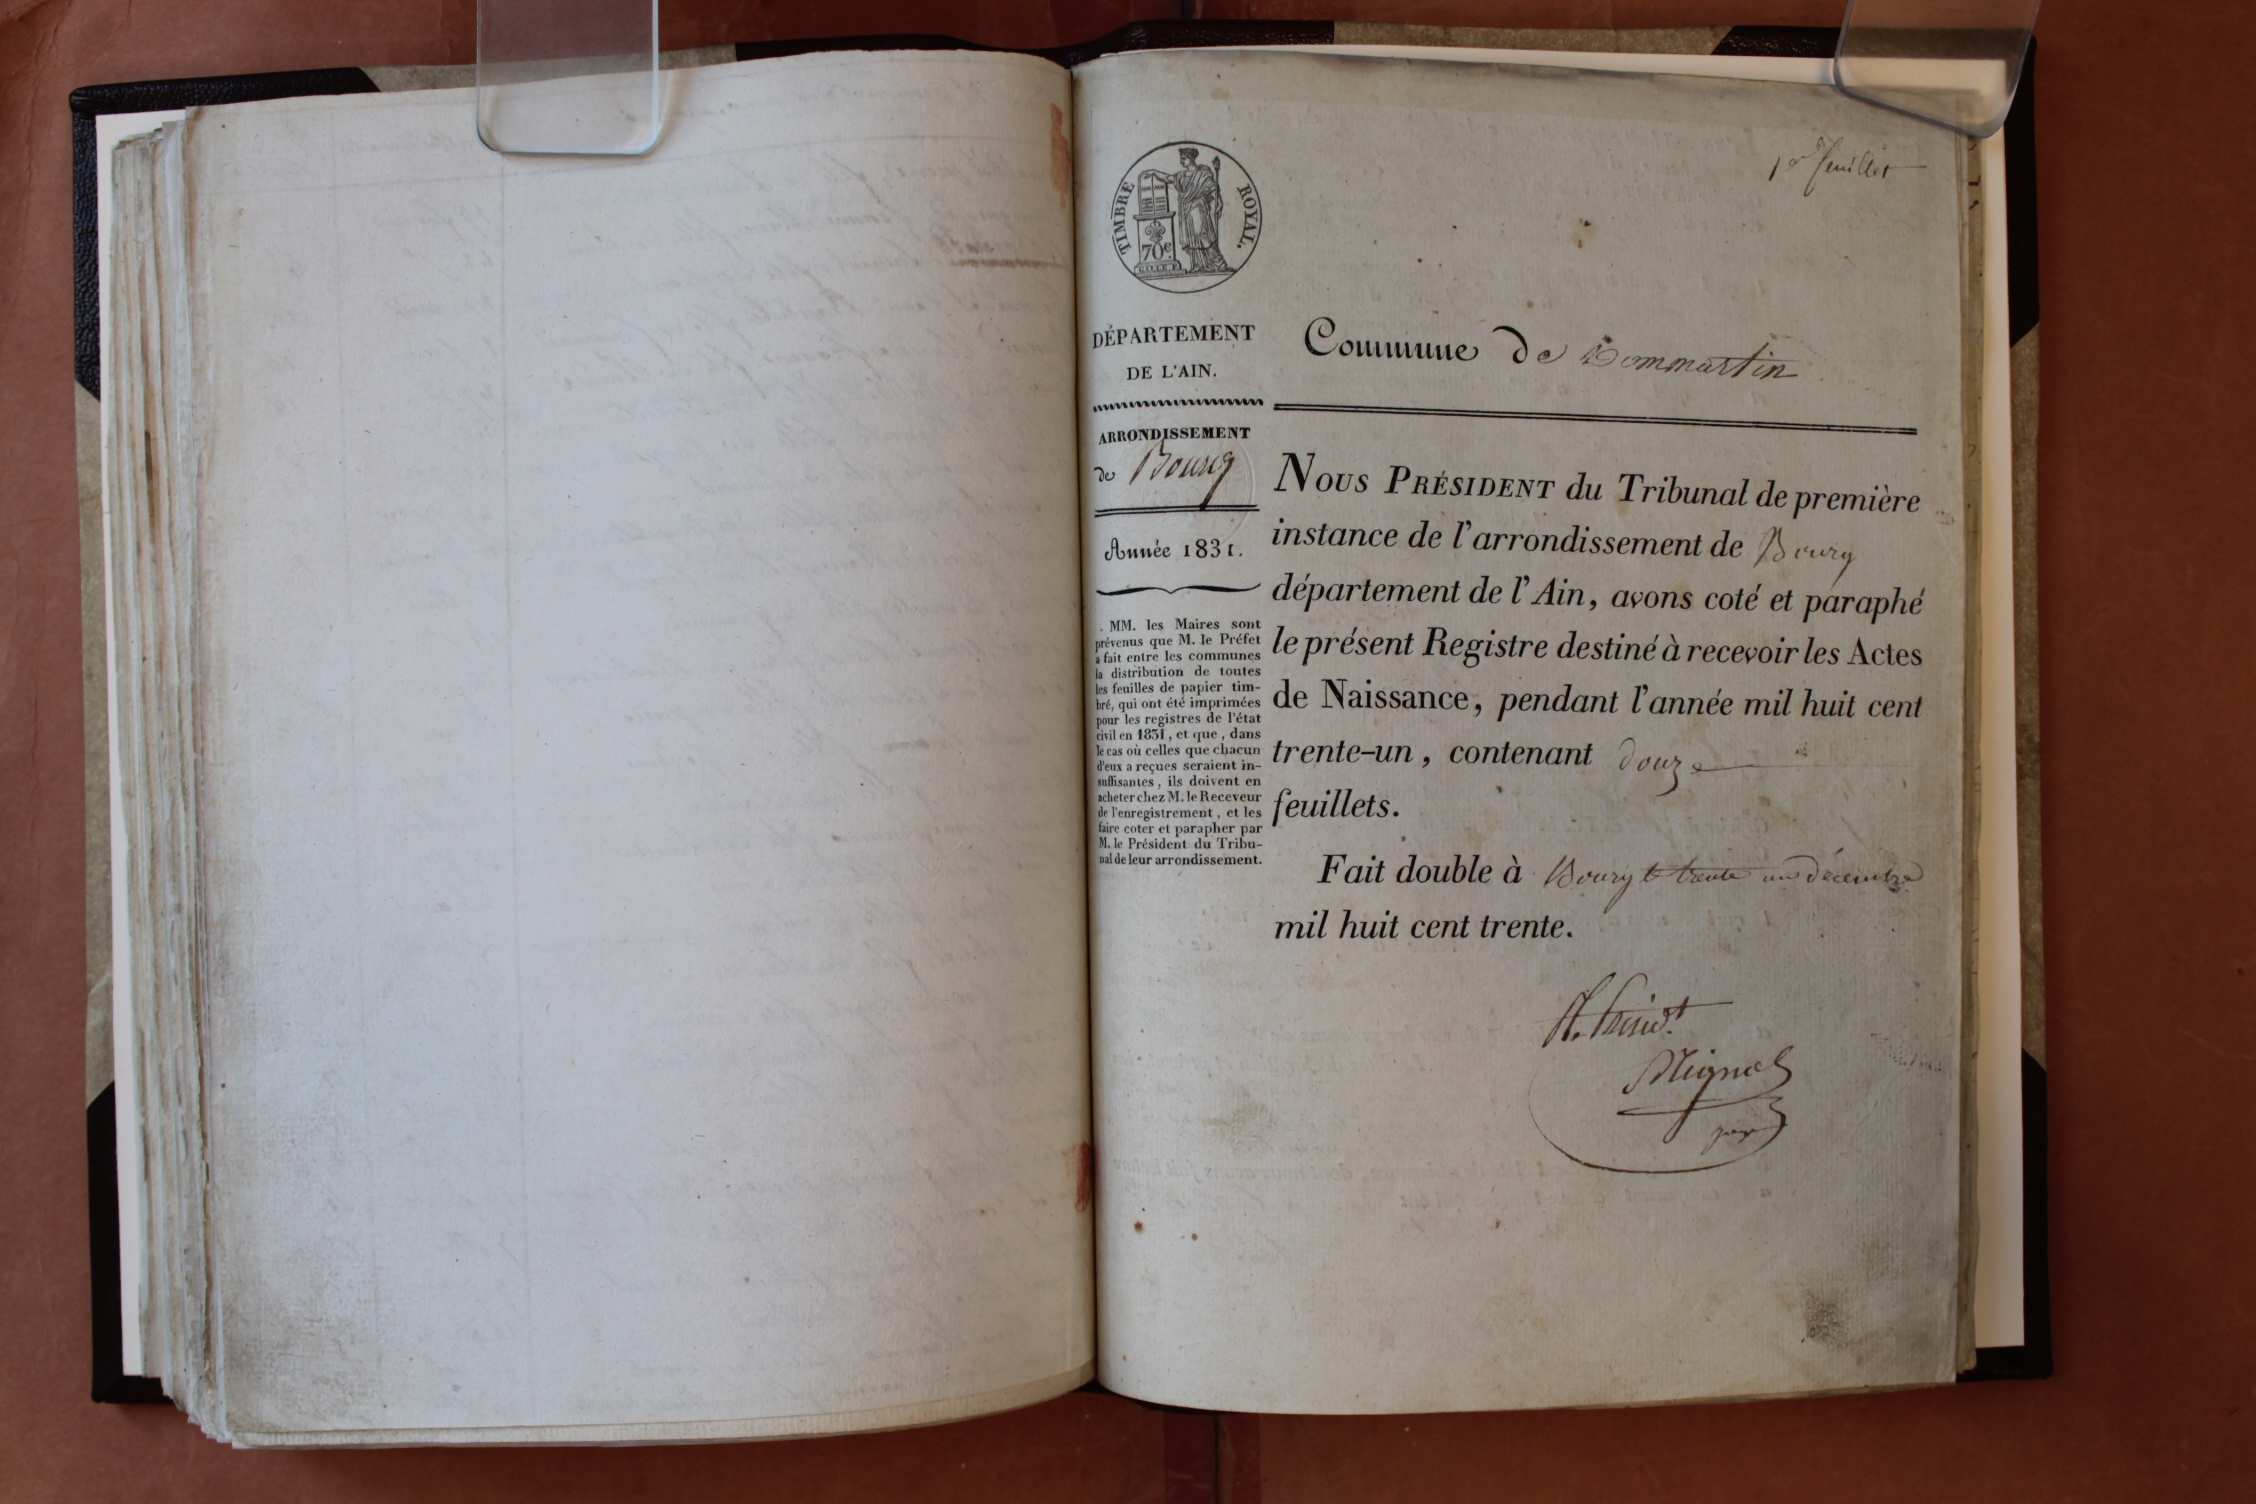 1er feuillet
TIMBRE ROYAL.
70c.
DÉPARTEMENT
DE L'AIN.
ARRONDISSEMENT
de Bourg
Année 1831.
MM. les Maires sont
prévenus que M. le Préfet
a fait entre les communes
la distribution de toutes
les feuilles de papier tim-
bré, qui ont été imprimées
pour les registres de l'état
civil en 1831, et que, dans
le cas où celles que chacun
d'eux a reçues seraient in-
suffisantes, ils doivent en
acheter chez M. le Receveur
de l'enregistrement, et les
faire coter et parapher par
M. le Président du Tribu-
nal de leur arrondissement.
Commune de Dommartin
NOUS PRÉSIDENT du Tribunal de première
instance de l'arrondissement de Bourg
département de l'Ain, avons coté et paraphé
le présent Registre destiné à recevoir les Actes
de Naissance, pendant l'année mil huit cent
trente-un, contenant douze
feuillets.
Fait double à Bourg le trente un décembre
mil huit cent trente.